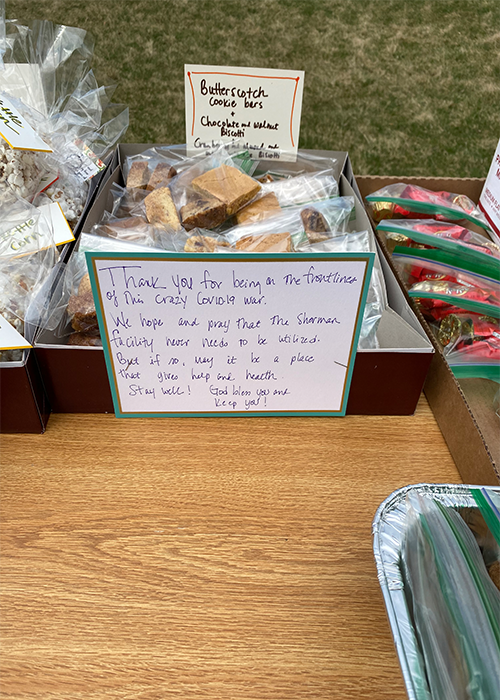 Butterscotch
Cookie bars
+
Chocolate and Walnut
Biscotti
Biscotti
Thank you for being on the frontlines
of this crazy COVID-19 war.
We hope and pray that the Sherman
facility never needs to be utilized.
But if so, may it be a place
that gives help and health.
Stay well! God bless you and
keep you!